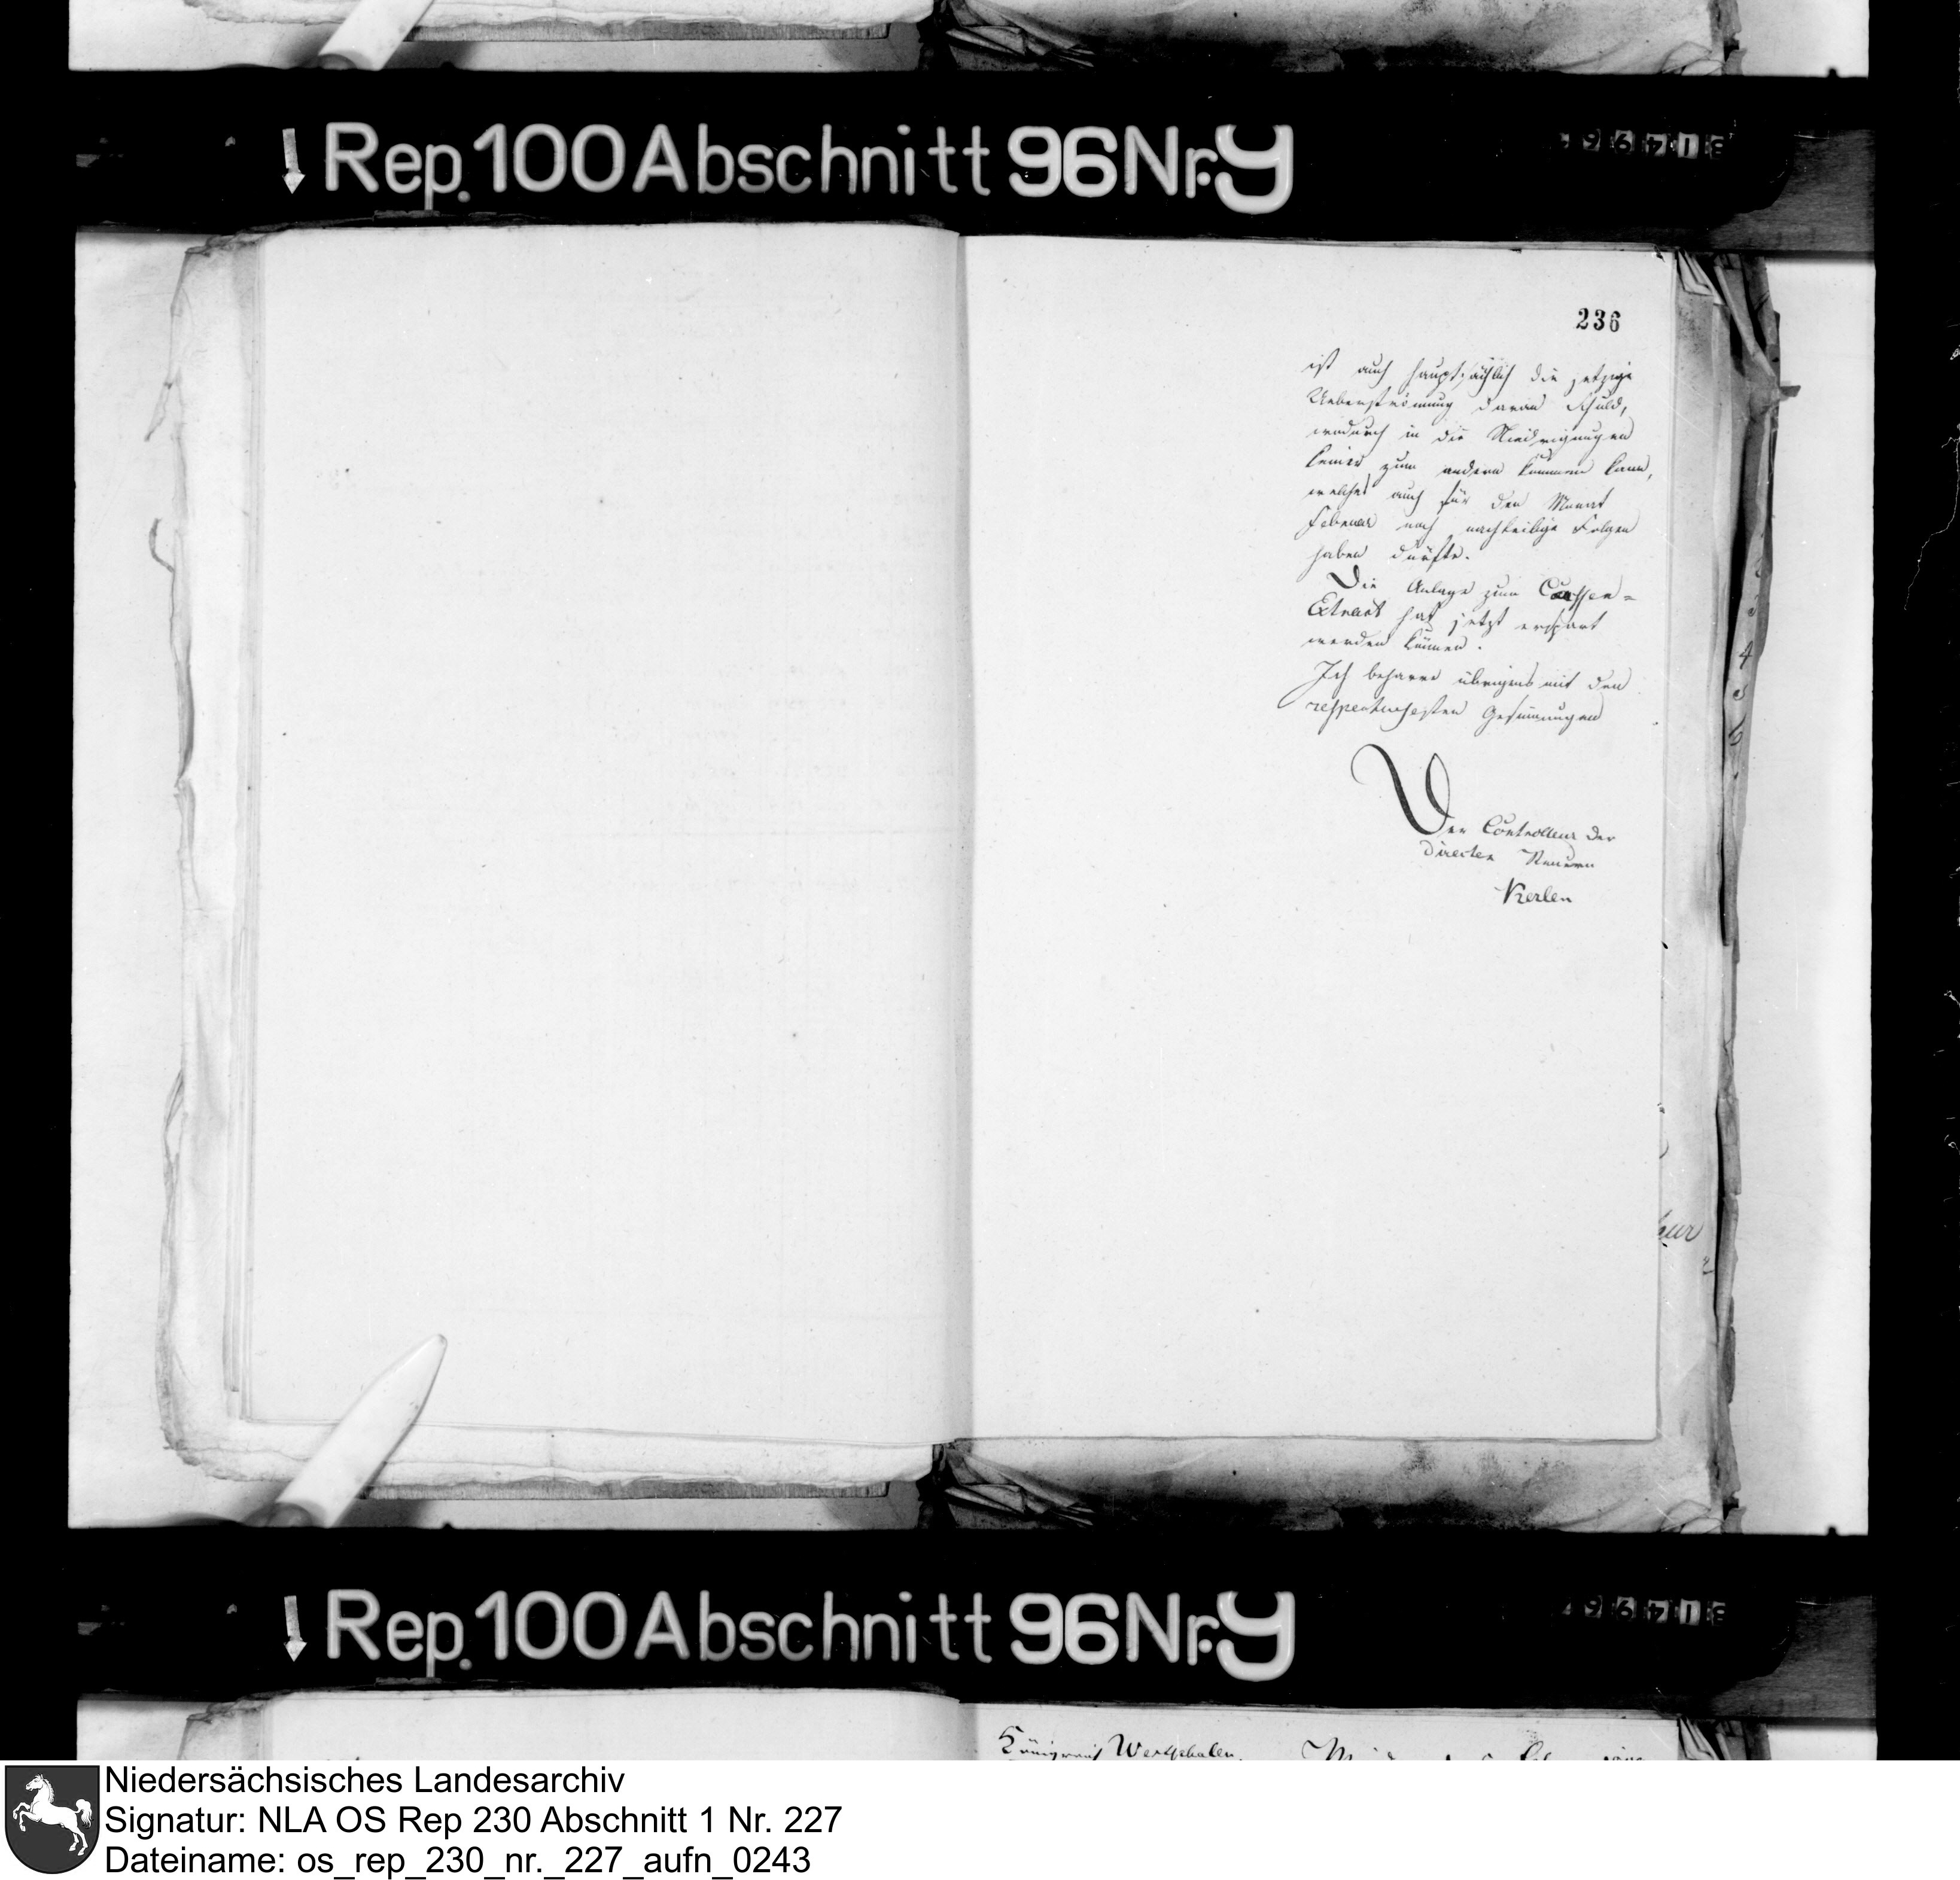 Rep. 100 Abschnitt 96 Nr. 9
236
ist auch hauptsächlich die jetzige
Ueberströmung daran Schuld,
wodurch in die Niedrigungen
keiner zum andern kommen kann,
welches auch für den Monat
Februar noch nachtheilige Folgen
haben dürfte.
Die Anlage zum Cassen-
Extract hat jetzt erspart
werden können.
Ich beharre übrigens mit den
respectuosesten Gesinnungen
Der Controlleur der
directen Steuern
Kerlen
Rep. 100 Abschnitt 96 Nr. 9
Königreich Westphalen.
Niedersächsisches Landesarchiv
Signatur: NLA OS Rep 230 Abschnitt 1 Nr. 227
Dateiname: os_rep_230_nr._227_aufn_0243